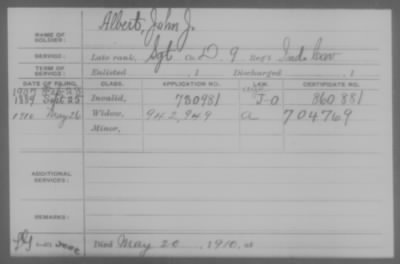 NAME OF SOLDIER: Albert, John J.
SERVICE: Late rank, Sgt Co. D, 9 Reg't Ind. Cav
TERM OF SERVICE: Enlisted , 1 Discharged , 1
DATE OF FILING. CLASS. APPLICATION NO. LAW. CERTIFICATE NO.
1907
1889 Sept 25 Invalid, 730981 J-O 860 881
1910 May 26 Widow, 942,949 a 704769
Minor,
ADDITIONAL SERVICES:
REMARKS:
Died May 20, 1910, at